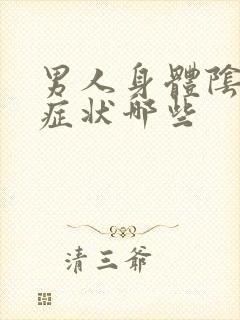 男人身體陰
症状哪些
清三爺